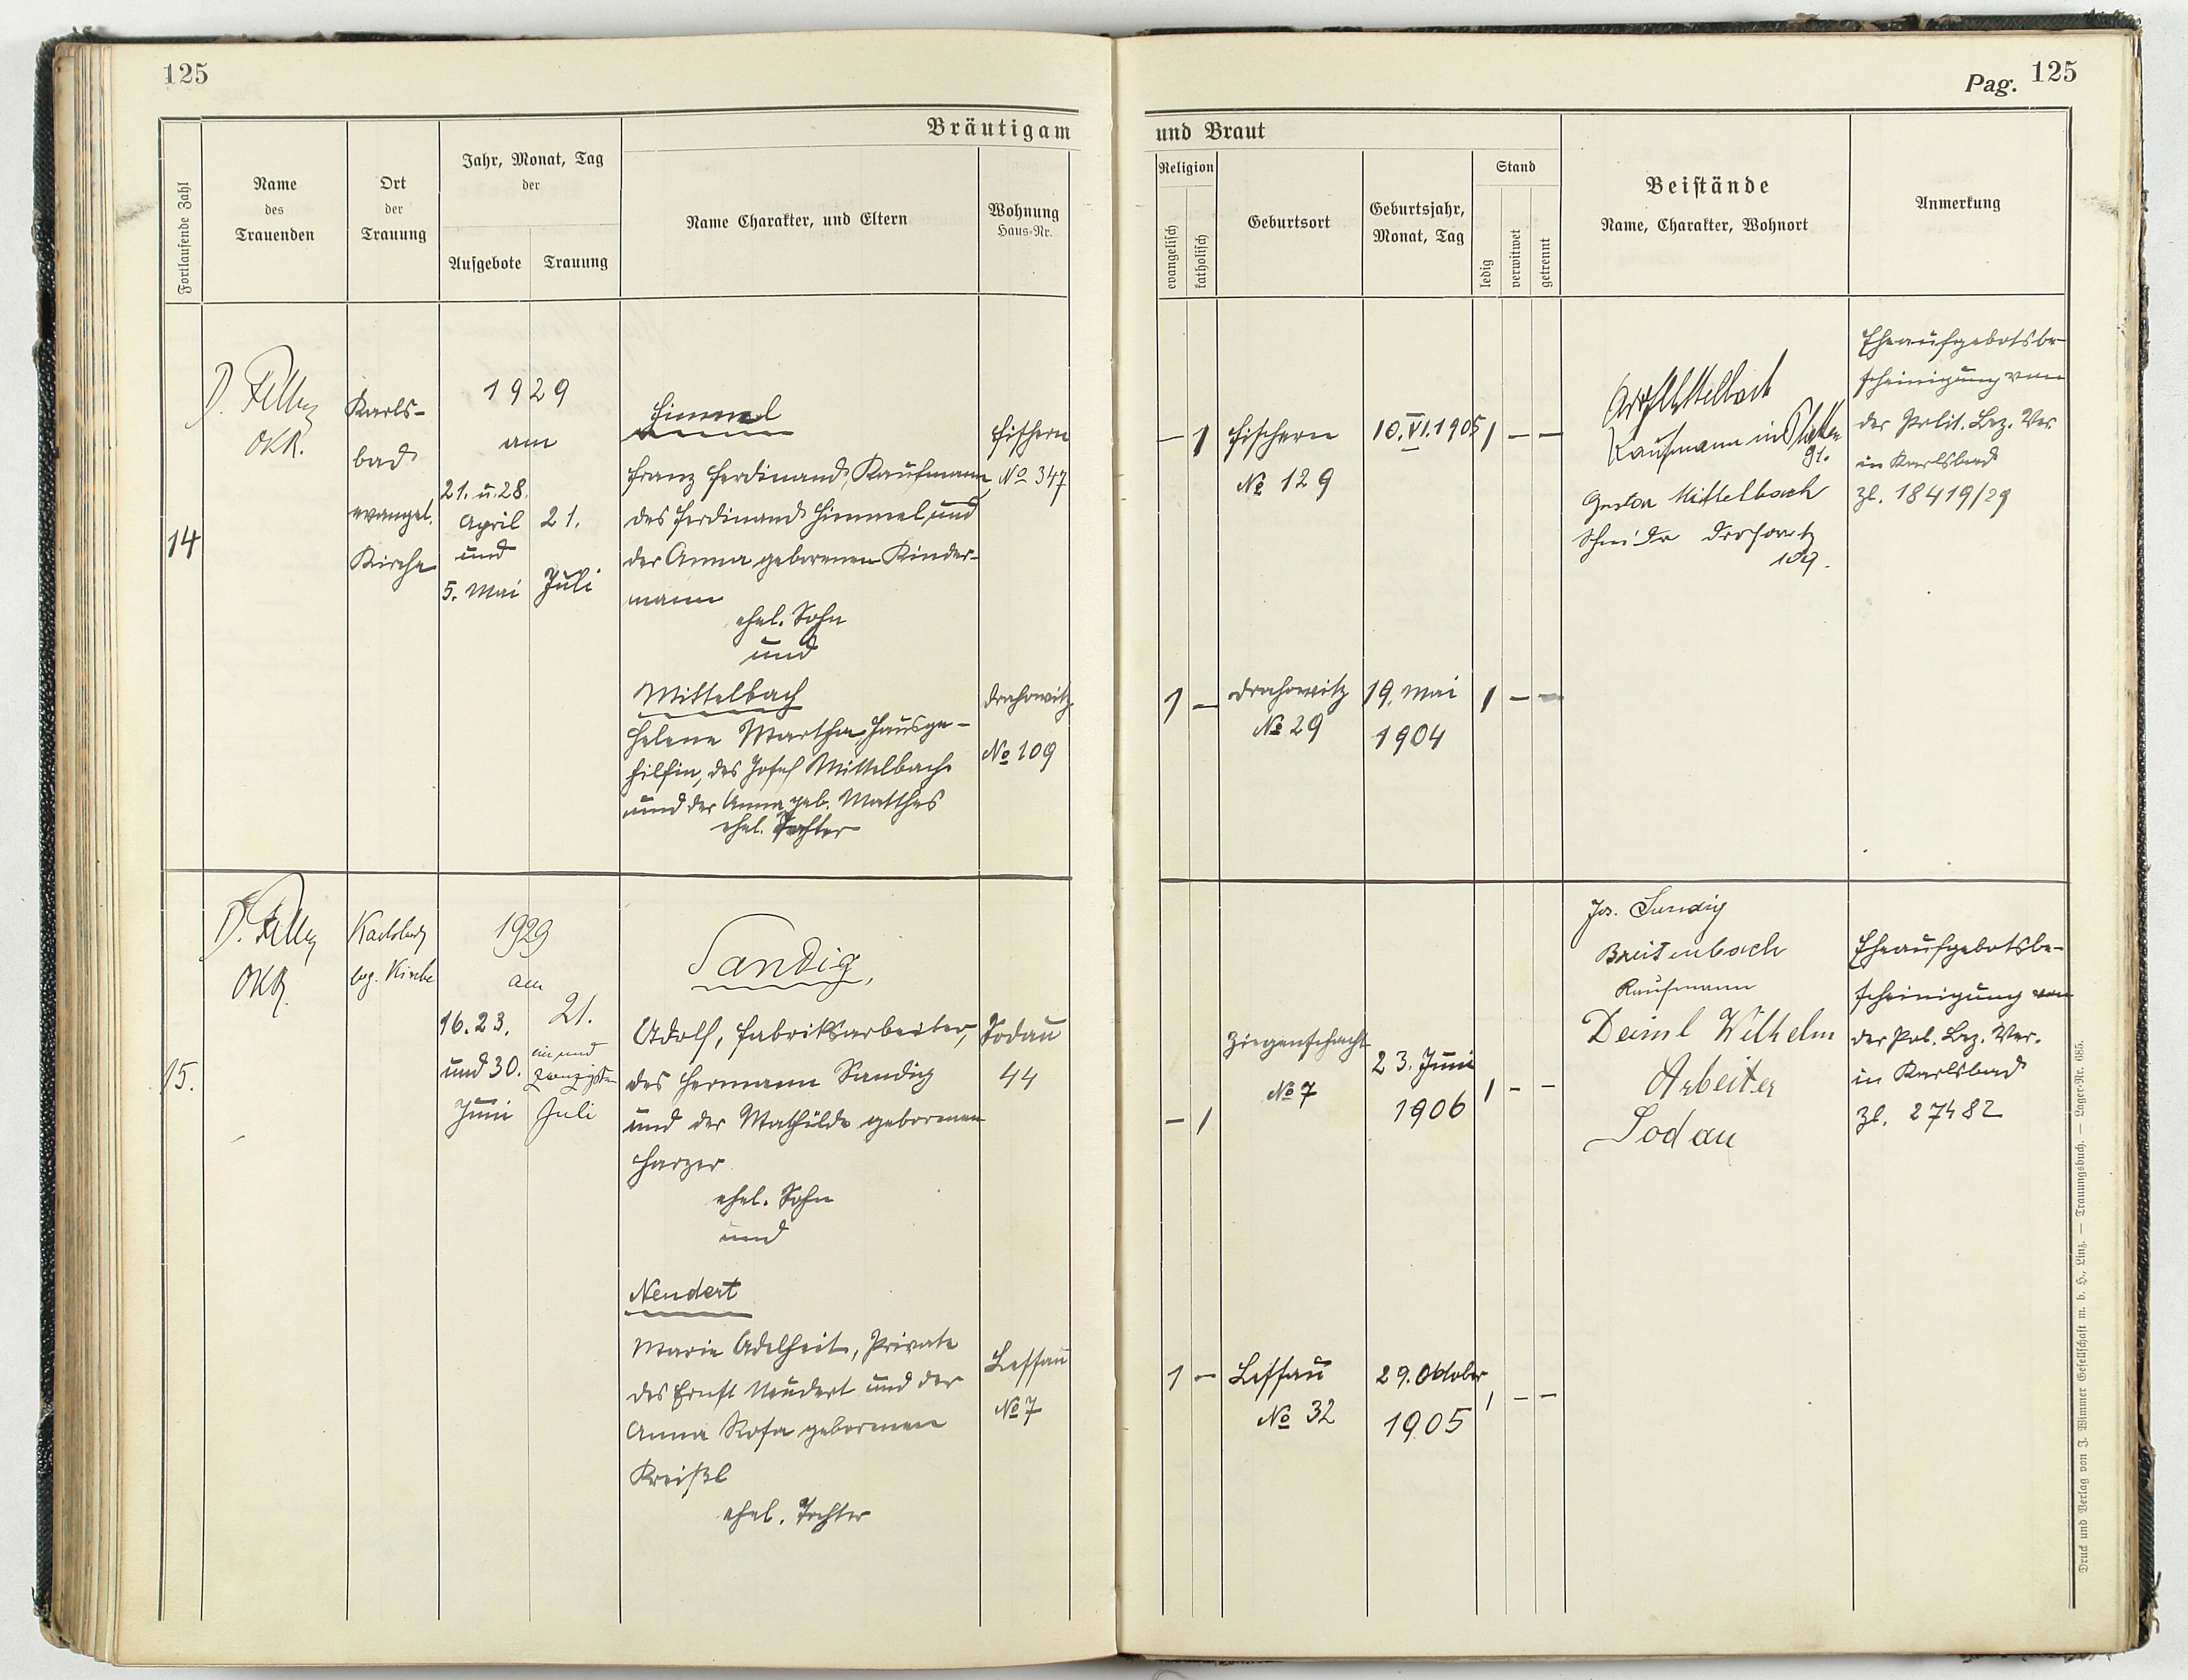 125
Bräutigam
Fortlaufende Zahl
Name
des
Trauenden
Ort
der
Trauung
Jahr, Monat, Tag
der
Aufgebote
Trauung
Name Charakter, und Eltern
Wohnung
Haus-Nr.
14
OKR.
Karls-
bad
evangel.
Kirche
1929
am
21. u. 28.
April
und
5. Mai
21.
Juli
Himmel
Franz Ferdinand, Kaufmann,
des Ferdinand Himmel und
der Anna geborenen Kinder-
mann
ehel. Sohn
und
Fischern
No 347
Mittelbach
Helene Martha Hausge-
hilfin, des Josef Mittelbach
und der Anna geb. Matthes
ehel. Tochter
Drahowitz
No 109
15.
OKR.
Karlsbad
ev. Kirche
1929
am
16. 23.
und 30.
Juni
21.
ein und
zwanzigsten
Juli
Sandig,
Adolf, Fabriksarbeiter,
des Hermann Sandig
und der Mathilde geborenen
Harzer
ehel. Sohn
und
Sodau
44
Neudert
Marie Adelheit, Private
des Ernst Neudert und der
Anna Rosa geborenen
Kreißl
ehel. Tochter
Lessau
No 7
Pag. 125
und Braut
Religion
evangelisch
katholisch
Geburtsort
Geburtsjahr,
Monat, Tag
Stand
ledig
verwitwet
getrennt
Beistände
Name, Charakter, Wohnort
Anmerkung
– 1
Fischern
No 129
10. VI. 1905
1 – –
Mittelbach
Kaufmann in
91.
Gustav Mittelbach
Schneider Drahowitz
109.
Eheaufgebotsbe-
scheinigung von
der Polit. Bez. Ver.
in Karlsbad
Zl. 18419/29
1 –
Drahowitz
No 29
19. Mai
1904
1 – –
– 1
Ziegenschacht
No 7
23. Juni
1906
1 – –
Jos. Sandig
Breitenbach
Kaufmann
Deiml Wilhelm
Arbeiter
Sodau
Eheaufgebotsbe-
scheinigung von
der Pol. Bez. Ver.
in Karlsbad
Zl. 27482
1 –
Lessau
No 32
29. Oktober
1905
1 – –
Druck und Verlag von J. Wimmer Gesellschaft m. b. H., Linz. — Trauungsbuch. — Lager-Nr. 685.